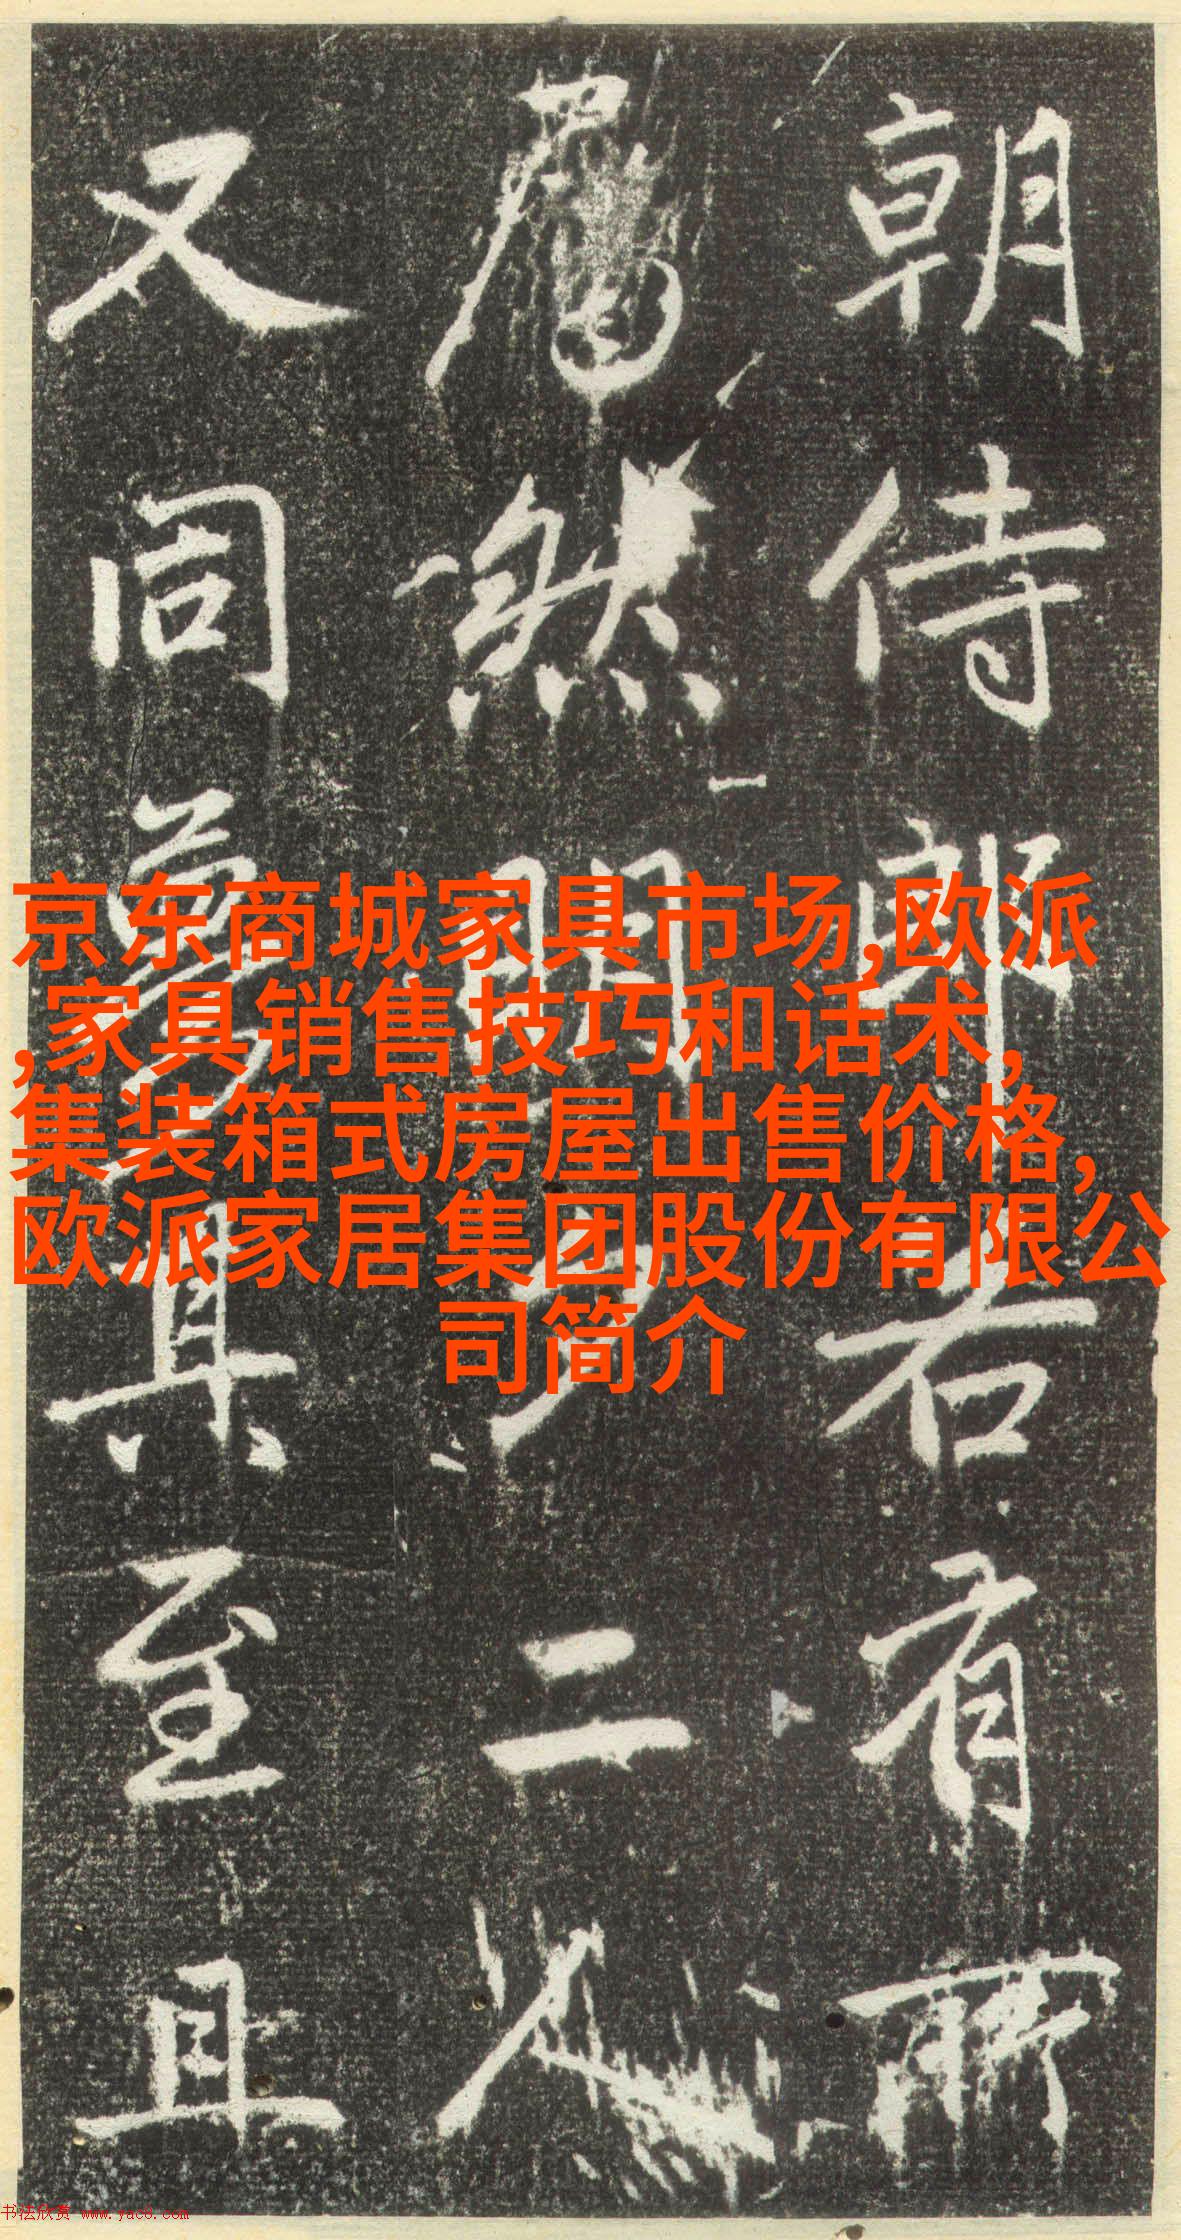 朝侍郎若有所
屬然閒
二人
又同
具至且
京东商城家具市场,欧派
,家具销售技巧和话术,
集装箱式房屋出售价格,
欧派家居集团股份有限公
司简介
书法欣赏 www.yac8.com